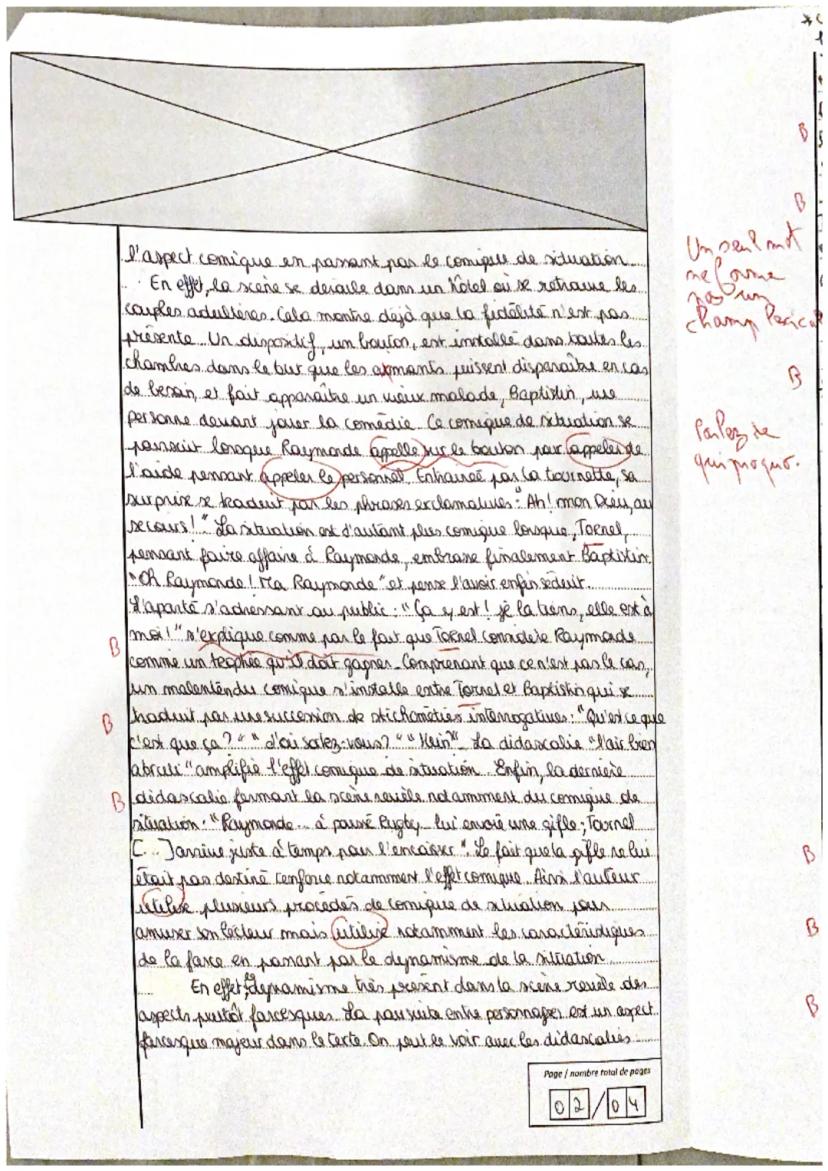 l'aspect comique en passant par le comique de situation
En effet, la scène se déroule dans un hôtel où se retrouve les
couples adultères. Cela montre déjà que la fidélité n'est pas
présente. Un dispositif, un bouton, est installé dans toutes les
chambres dans le but que les amants puissent disparaître en cas
de besoin, et fait apparaître un vieux malade, Baptistin, une
personne devant jouer la comédie. Ce comique de situation se
poursuit lorsque Raymonde appelle sur le bouton pour appeler de
l'aide pensant appeler le personnel. Entraineé par la tournette, sa
surprise se traduit par les phrases exclamatives : "Ah! mon Dieu, au
secours!" La situation est d'autant plus comique lorsque, Tornel,
pensant faire affaire à Raymonde, embrasse finalement Baptistin.
"Oh Raymonde! Ma Raymonde" et pense l'avoir enfin séduit.
L'aparté s'adressant au public : "Ça y est! je la tiens, elle est à
moi!" s'explique comme par le fait que Tornel considère Raymonde
comme un trophée qu'il doit gagner. Comprenant que ce n'est pas le cas,
un malentendu comique s'installe entre Tornel et Baptistin qui se
traduit par une succession de stichométies interrogatives : "Qu'est ce que
c'est que ça?" "d'où sortez-vous?" "Hein". La didascalie "l'air bien
abruti" amplifie l'effet comique de situation. Enfin, la dernière
didascalie fermant la scène révèle notamment du comique de
situation : "Raymonde... a poussé Rugby... lui envoie une gifle; Tournel
[...] arrive juste à temps pour l'encaisser". Le fait que la gifle ne lui
était pas destiné renforce notamment l'effet comique. Ainsi l'auteur
utilise plusieurs procédés de comique de situation pour
amuser son lecteur mais utilise notamment les caractéristiques
de la farce en passant par le dynamisme de la situation
En effet, le dynamisme très présent dans la scène révèle des
aspects plutôt farcesques. La poursuite entre personnages est un aspect
farcesque majeur dans le texte. On peut le voir avec les didascalies
Page / nombre total de pages
02 / 04
B
B
B
B
B
Un seul mot
ne forme
pas un
champ lexical
B
Parlez de
quiproquo.
B
B
B